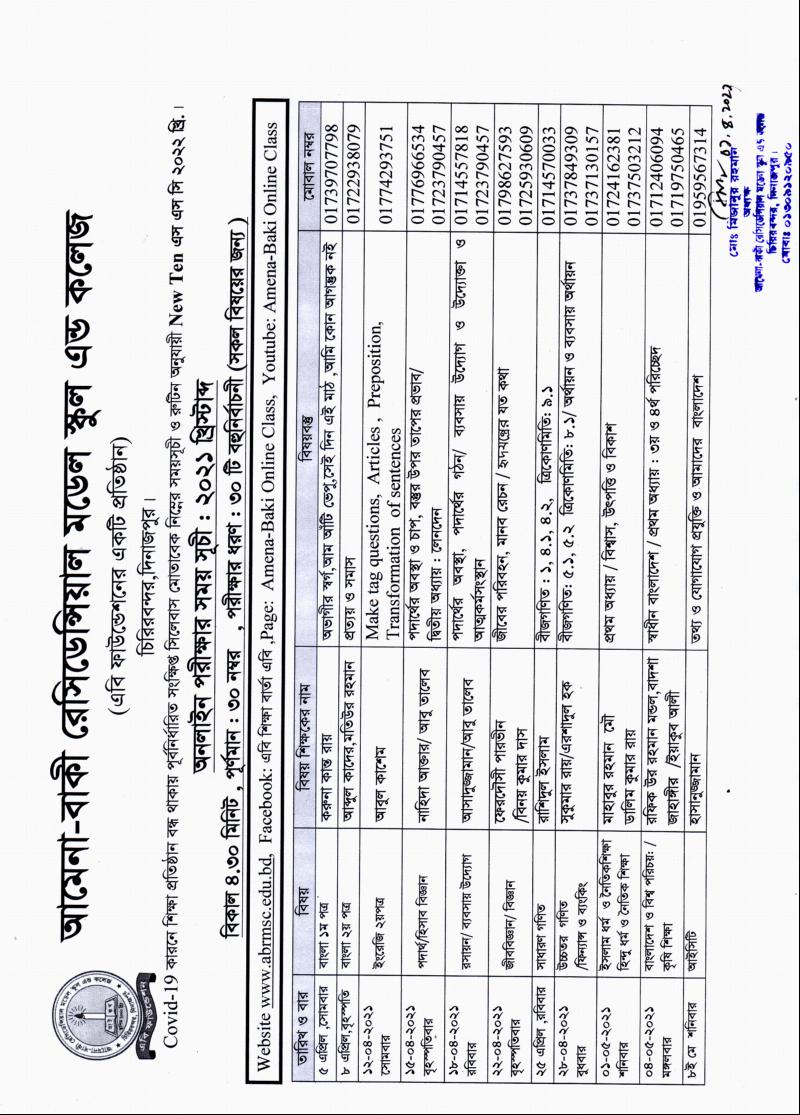 আমেনা-বাকী রেসিডেন্সিয়াল মডেল স্কুল এন্ড কলেজ
(এবি ফাউন্ডেশনের একটি প্রতিষ্ঠান)
চিরিরবন্দর,দিনাজপুর।
Covid-19 কারনে শিক্ষা প্রতিষ্ঠান বন্ধ থাকায় পূর্বনির্ধারিত সংক্ষিপ্ত সিলেবাস মোতাবেক নিম্নের সময়সূচী ও রুটিন অনুযায়ী New Ten এস এস সি ২০২২ খ্রি.।
অনলাইন পরীক্ষার সময় সূচী : ২০২১ খ্রিস্টাব্দ
বিকাল ৪.৩০ মিনিট , পূর্ণমান : ৩০ নম্বর , পরীক্ষার ধরণ : ৩০ টি বহুনির্বাচনী (সকল বিষয়ের জন্য )
Website www.abrmsc.edu.bd, Facebook: এবি শিক্ষা বার্তা এবি ,Page: Amena-Baki Online Class, Youtube: Amena-Baki Online Class
তারিখ ও বার বিষয় বিষয় শিক্ষকের নাম বিষয়বস্তু মোবাল নম্বর
৫ এপ্রিল ,সোমবার বাংলা ১ম পত্র করুনা কান্ত রায় অভাগীর স্বর্গ,আম আঁটি ভেপু,সেই দিন এই মাঠ ,আমি কোন আগন্তুক নই 01739707798
৮ এপ্রিল,বৃহস্পতি বাংলা ২য় পত্র আব্দুল কাদের,মতিউর রহমান প্রত্যয় ও সমাস 01722938079
১২-০৪-২০২১ সোমবার ইংরেজি ২য়পত্র আবুল কাশেম Make tag questions, Articles , Preposition, 01774293751
Transformation of sentences
১৫-০৪-২০২১ বৃহস্পতিবার পদার্থ/হিসাব বিজ্ঞান নাহিদা আক্তার/ আবু তালেব পদার্থের অবস্থা ও চাপ, বস্তুর উপর তাপের প্রভাব/ 01776966534
দ্বিতীয় অধ্যায় : লেনদেন 01723790457
১৮-০৪-২০২১ রবিবার রসায়ন/ ব্যবসায় উদ্যোগ আসাদুজ্জামান/আবু তালেব পদার্থের অবস্থা, পদার্থের গঠন/ ব্যবসায় উদ্যোগ ও উদ্যোক্তা ও 01714557818
আত্মকর্মসংস্থান 01723790457
২২-০৪-২০২১ বৃহস্পতিবার জীববিজ্ঞান/ বিজ্ঞান ফেরদৌসী পারভীন জীবের পরিবহন, মানব রেচন / হৃদযন্ত্রের যত কথা 01798627593
/বিনয় কুমার দাস 01725930609
২৫ এপ্রিল ,রবিবার সাধারণ গণিত রাশিদুল ইসলাম বীজগণিত : ১, ৪.১, ৪.২, ত্রিকোণমিতি: ৯.১ 01714570033
২৮-০৪-২০২১ বুধবার উচ্চতর গণিত /ফিন্যান্স ও ব্যাংকিং সুকুমার রায়/এরশাদুল হক বীজগণিত: ৫.১, ৫.২ ত্রিকোণমিতি: ৮.১/ অর্থায়ন ও ব্যবসায় অর্থায়ন 01737849309
01737130157
০১-০৫-২০২১ শনিবার ইসলাম ধর্ম ও নৈতিকশিক্ষা মাহাবুর রহমান মৌ প্রথম অধ্যায় / বিশ্বাস, উৎপত্তি ও বিকাশ 01724162381
হিন্দু ধর্ম ও নৈতিক শিক্ষা ডালিম কুমার রায় 01737503212
০৪-০৫-২০২১ মঙ্গলবার বাংলাদেশ ও বিশ্ব পরিচয়: / রফিক উর রহমান মন্ডল,বাদশা স্বাধীন বাংলাদেশ / প্রথম অধ্যায় : ৩য় ও ৪র্থ পরিচ্ছেদ 01712406094
কৃষি শিক্ষা জাহাঙ্গীর /ইয়াকুব আলী 01719750465
৮ই মে শনিবার আইসিটি হাসানুজ্জামান তথ্য ও যোগাযোগ প্রযুক্তি ও আমাদের বাংলাদেশ 01959567314
মোঃ মিজানুর রহমান
অধ্যক্ষ
আমেনা-বাকী রেসিডেন্সিয়াল মডেল স্কুল এন্ড কলেজ
চিরিরবন্দর, দিনাজপুর।
এবি ফাউন্ডেশন